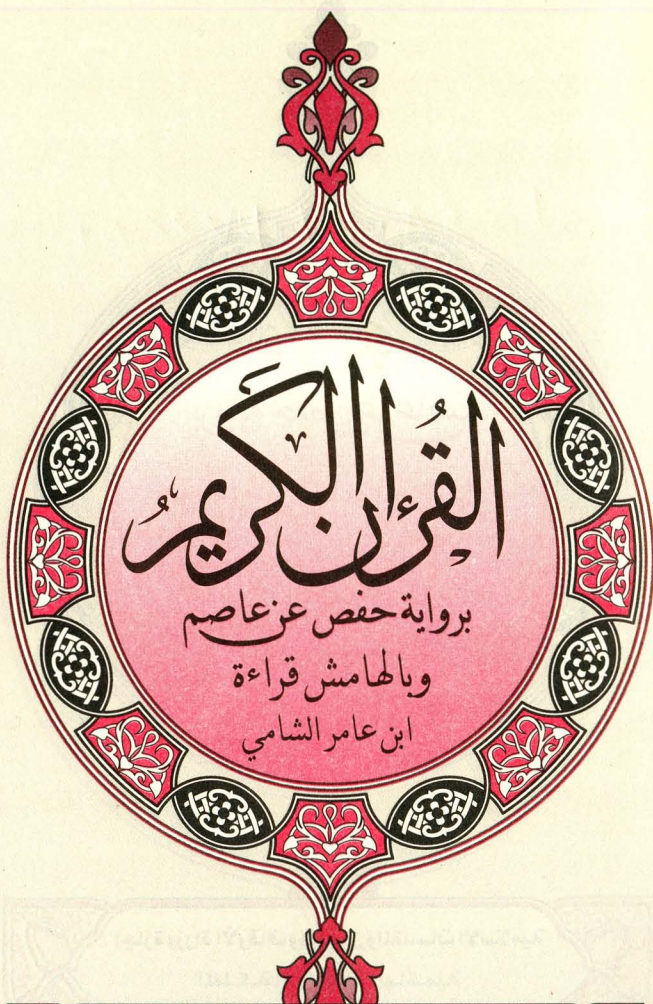 القرءان الكريم
برواية حفص عن عاصم
وبالهامش قراءة
ابن عامر الشامي